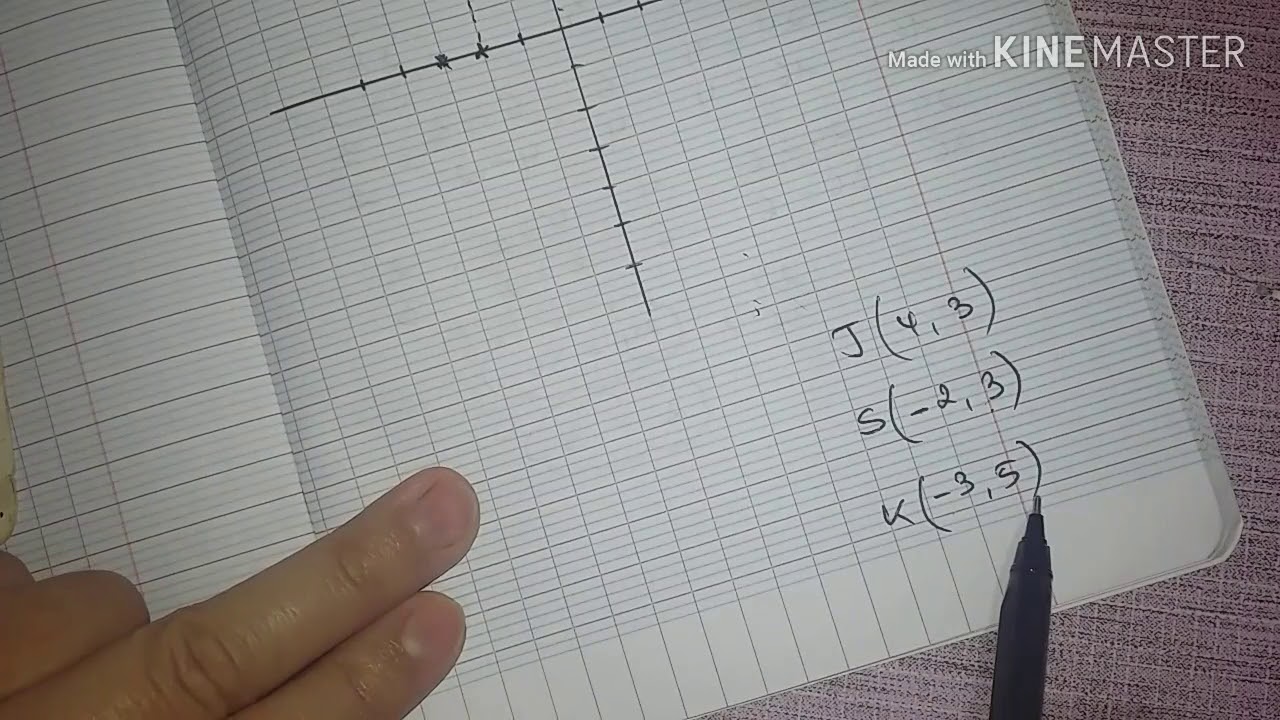 Made with KINEMASTER
J(4,3)
S(-2,3)
K(-3,5)